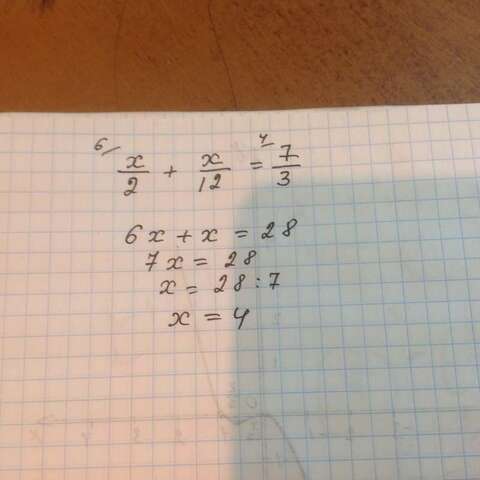 6/ x/2 + x/12 = 4/ 7/3
6x + x = 28
7x = 28
x = 28 : 7
x = 4